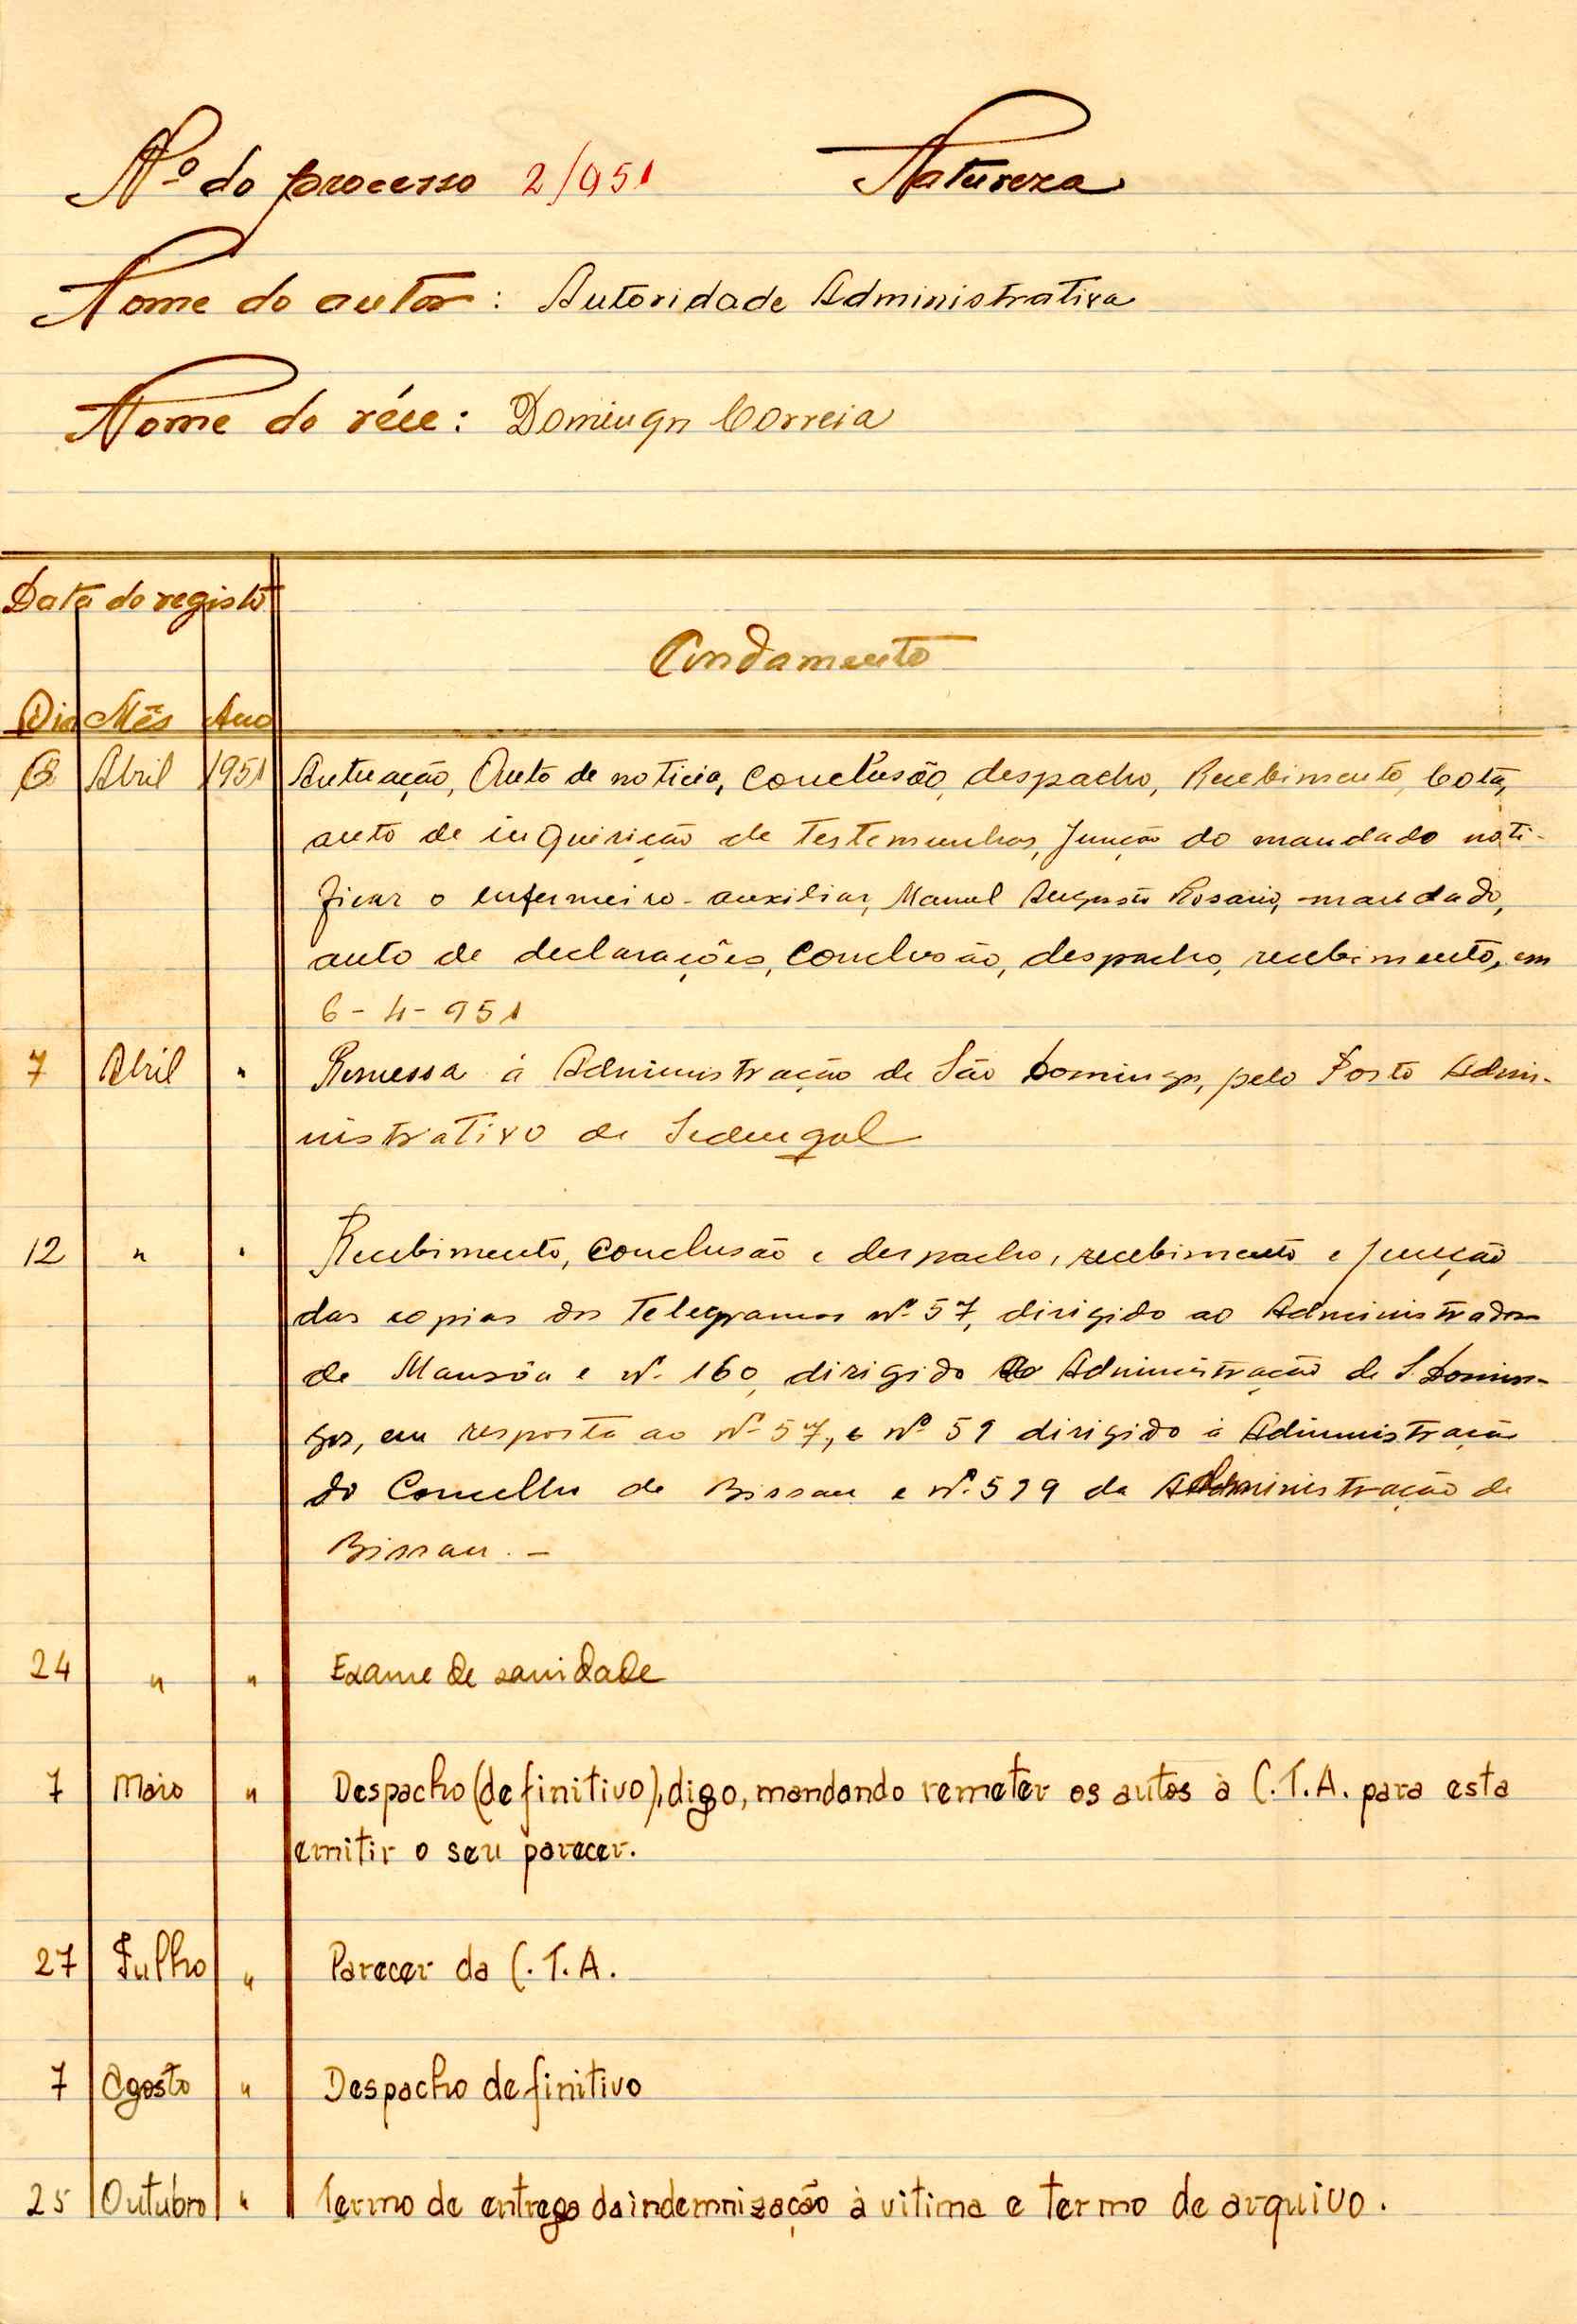 Nº do processo 2/951 Natureza
Nome do autor: Autoridade Administrativa
Nome do réu: Domingos Correia
Data do registo
Andamento
Dia Mês Ano
6 Abril 1951 Autuação, Auto de noticia, Conclusão, despacho, Recebimento, Cota,
auto de inquirição de testemunhas, Junção do mandado noti-
ficar o enfermeiro-auxiliar, Manuel Augusto Rosario, mandado,
auto de declarações, Conclusão, despacho, recebimento, em
6-4-951
7 Abril " Remessa á Administração de São Domingos, pelo Posto Admi-
nistrativo de Sedengal
12 " " Recebimento, Conclusão e despacho, recebimento e Junção
das copias dos Telegramas nº 57, dirigido ao Administrador
de Mansôa e nº 160, dirigido Administração de S. Domin-
gos, em resposta ao nº 57, e nº 59 dirigido á Administração
do Concelho de Bissau e nº 529 da Administração de
Bissau. -
24 " " Exame de sanidade
7 Maio " Despacho (definitivo), digo, mandando remeter os autos à C.T.A. para esta
emitir o seu parecer.
27 Julho " Parecer da C.T.A.
7 Agosto " Despacho definitivo
25 Outubro " Termo de entrega da indemnização à vitima e termo de arquivo.